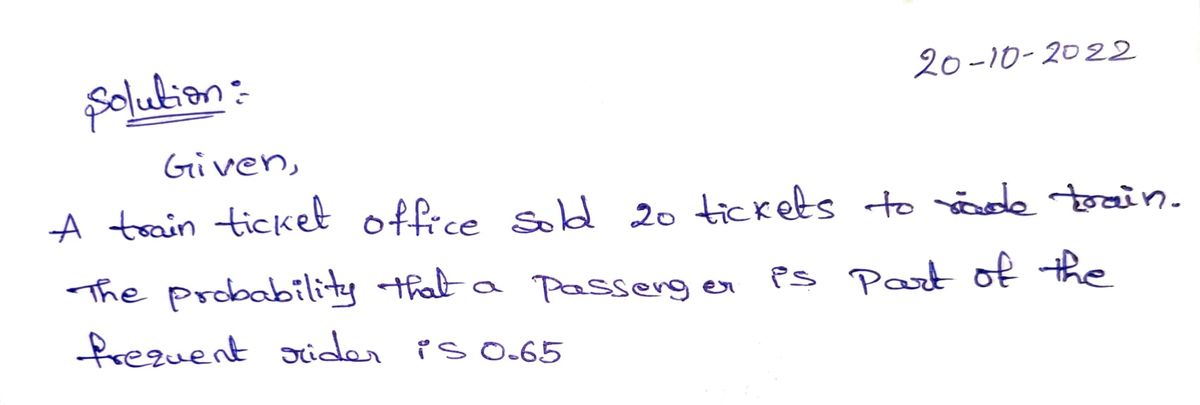 20-10-2022
Solution:-
Given,
A train ticket office sold 20 tickets to ride train.
The probability that a passenger is part of the
frequent rider is 0.65